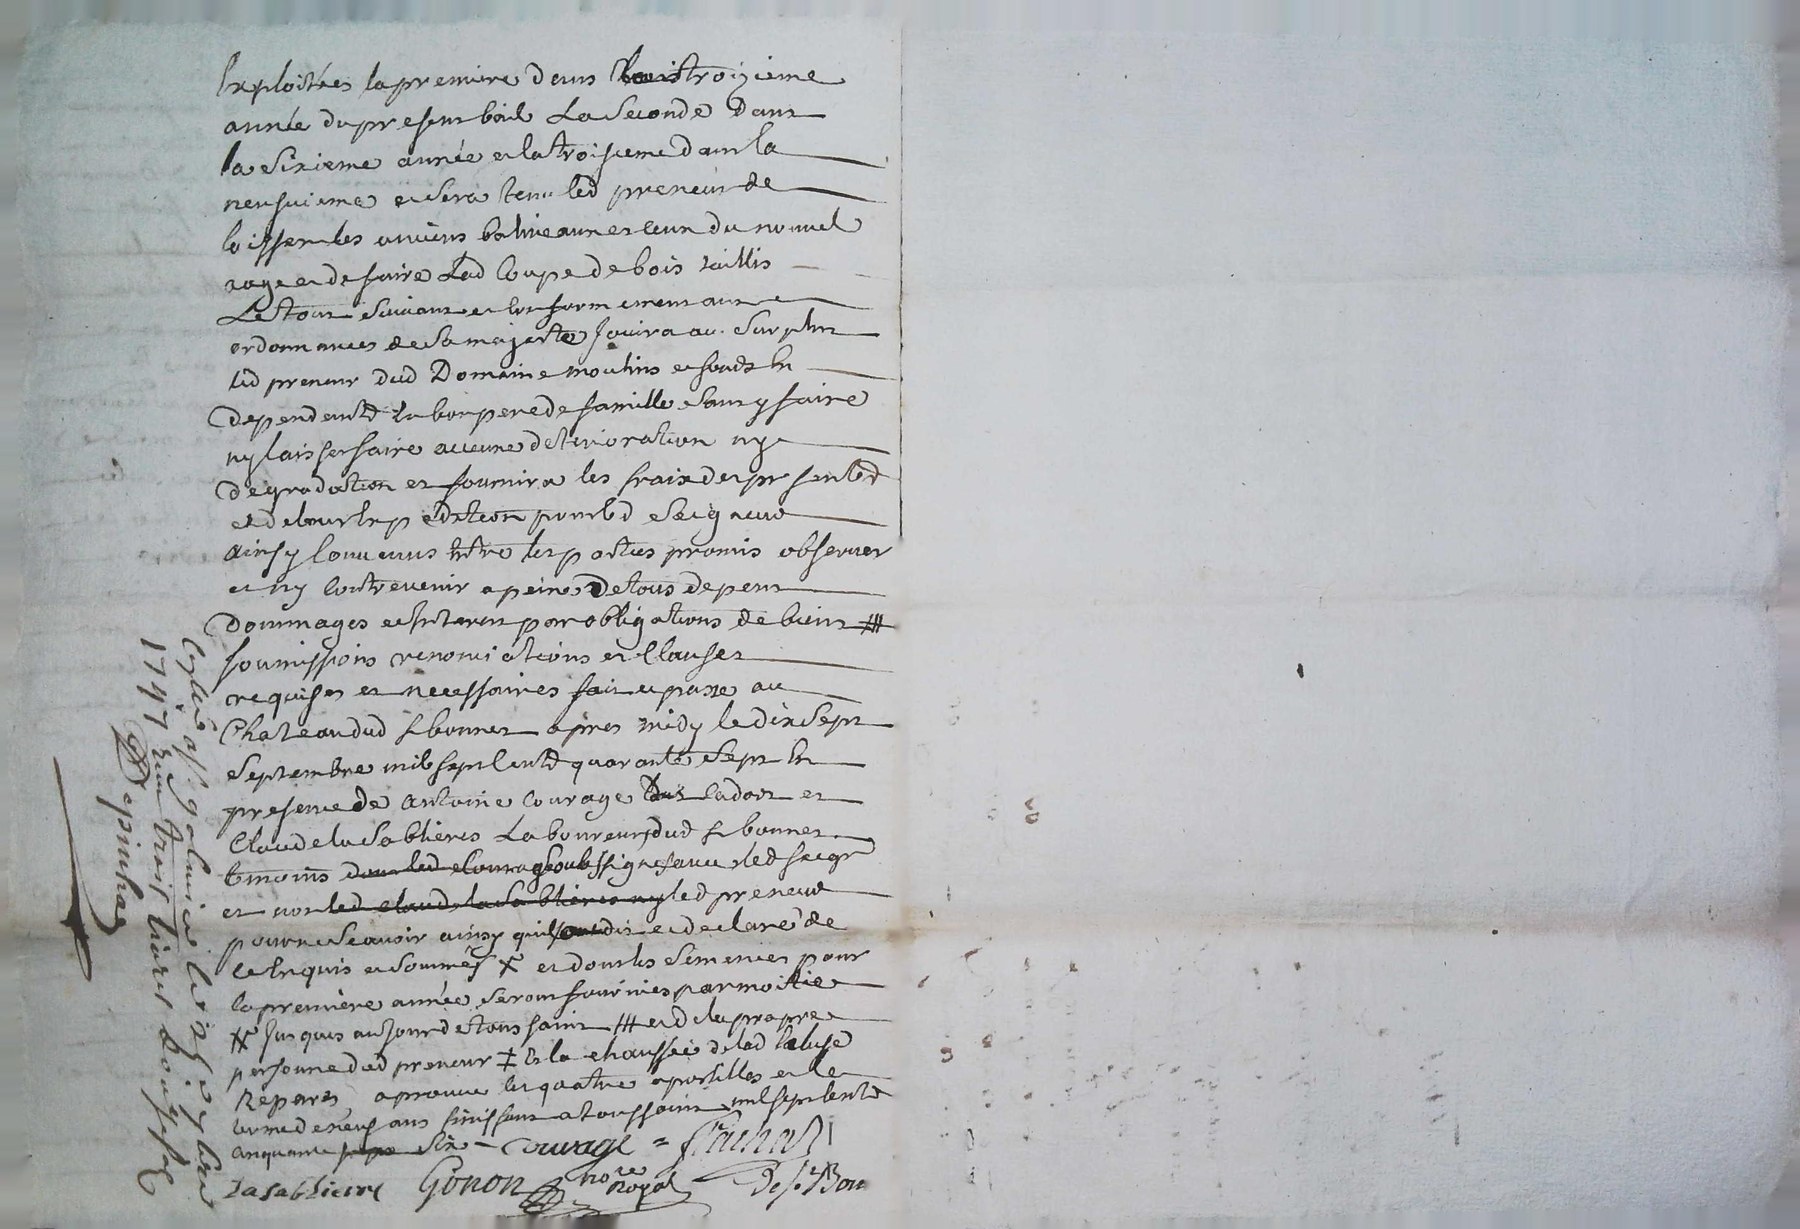 Exploitées la premiere dans trois troizieme
année du present bail La Seconde Dans
la Sixieme année et la troisieme dans la
neufvieme et sera tenu led preneur de
laisser les anciens baliveaux et ceux du nouvel
aage et de faire Lad Coupe de bois taillis
Le tout suivant et conformement aux
ordonnances de Sa majesté Jouira au Surplus
led preneur dud Domaine moulins et fonds En
dependentd En bon pere de famille Sans y faire
ny laisser faire aucune deterioration ny
degradation et fournira les fraix des presented
et de leur Expedition pour led Seigneur
ainsy Convenus Entre les parties promis observer
et ny Contrevenir a peines De tous depens
Dommages et Interets par obligations de biens #
soumissions renonciations et Clauses
requises et necessaires fait et passé au
Chateau dud St bonnet apres midy le dix Sept
Septembre mil sept centd quarante Sept En
presence de antoine Courage et
Claude la Sablieres Laboureurs dud St bonnet
temoins dont led Courage soubssigné avec led Seigr
et non led claude la Sablieres ny led preneur
pour ne Scavoir ainsy quil ont dit et declaré de
ce Enquis et Sommés X et dont les Semences pour
la premiere année Seront fournies par moitie
jusques au Jour de tous Saint # et de la propre
personne dud preneur ‡ Et la chaussée de lad Ecluse
Repares aprouvé les quatre apostilles et le
terme de neuf ans finissant a toussaint mil sept centd
cinquante six - Courage = Flachat
Lasablieere Gonon nore Royal De St Bon
Controllé a St galmier le 25 7bre
1747 Reçu trois livres douze sols
Depinhac